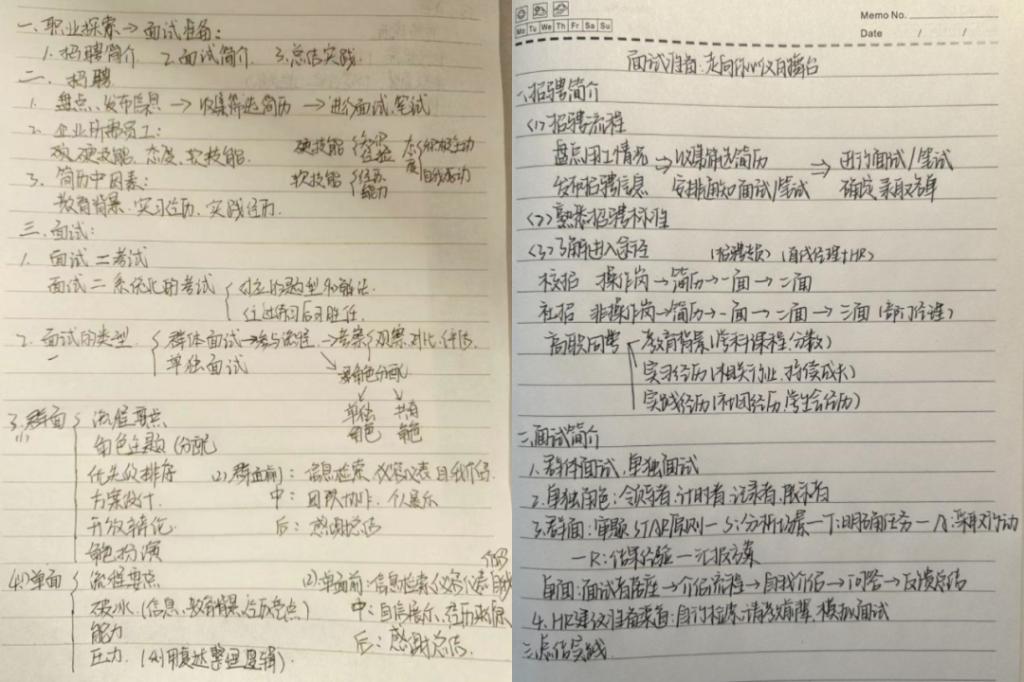 一、职业探索→面试准备:
1.招聘简介 2.面试简介 3.总结实践
二、招聘
1. 盘点、发布信息→收集筛选简历→进行面试/笔试
2. 企业所需员工:
硬技能、态度、软技能.
硬技能 知识 经验 态度 积极主动 自我驱动
软技能 任务 能力
3. 简历中因素:
教育背景、实习经历、实践经历.
三、面试:
1. 面试=考试
面试=系统化的考试
2. 面试的类型 群体面试→参与流程→考察 观察、对比、评估
单独面试
角色分配
单独角色 共有角色
3.群面
(1) 流程要点
角色主题(分配
优先级排序
方案设计
开放辩论
角色扮演
(2)群面前: 信息检索、仪容仪表、自我介绍
中: 团队协作、个人展示
后: 感谢总结
4.(1)单面 流程要点
破冰.(信息、教育背景、经历亮点)
能力
压力.(利用复述整理逻辑).
(2)单面前:信息检索、仪容仪表、自我介绍
中:自信展示、经历
后:感谢总结.
Memo No.
Date / /
Mo Tu We Th Fr Sa Su
面试准备:走向你的擂台
一、招聘简介
<1>招聘流程
盘点用工情况⇒收集筛选简历⇒进行面试/笔试
发布招聘信息 安排通知面试/笔试 确定录取名单
<2>熟悉招聘标准
<3>了解进入途径 (招聘专员) (直线经理+HR)
校招 操作岗→简历→一面→二面
社招 非操作岗→简历→一面→二面→三面(部门经理)
高职同学 教育背景(学科课程、分数)
实习经历(相关行业、持续成长)
实践经历(社团经历、学生会经历)
二、面试简介
1.群体面试、单独面试
2.单独角色:领导者、计时者、记录者、展示者
3.群面:审题、STAR原则—S:分析场景—T:明确任务—A:采取行动
—R:结果经验—汇报方案
单面:面试者落座→介绍流程→自我介绍→问答→反馈总结
4.HR建议准备渠道:自行检索、请教前辈、模拟面试
三、总结实践